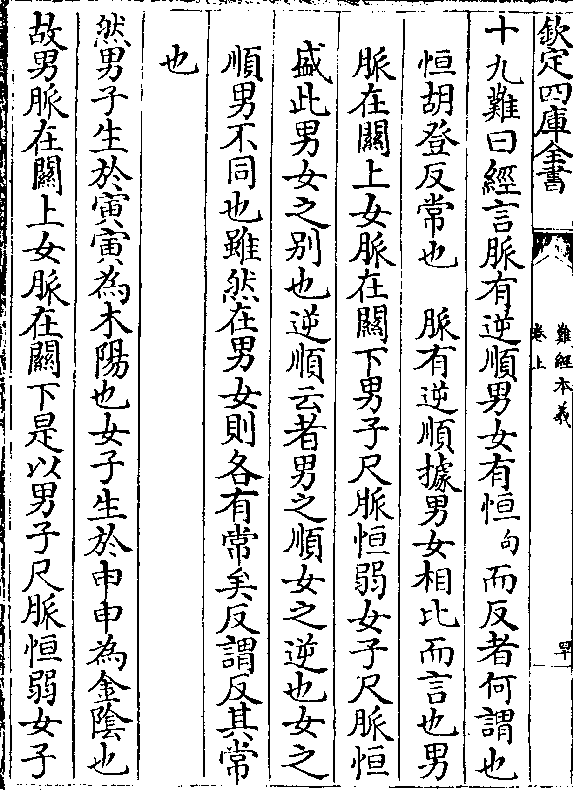 欽定四庫全書
難經本義
卷上
十九難曰經言脈有逆順男女有恒句而反者何謂也
恒胡登反常也 脈有逆順據男女相比而言也男
脈在關上女脈在關下男子尺脈恒弱女子尺脈恒
盛此男女之别也逆順云者男之順女之逆也女之
順男不同也雖然在男女則各有常矣反謂反其常
也
然男子生於寅寅為木陽也女子生於申申為金陰也
故男脈在關上女脈在關下是以男子尺脈恒弱女子